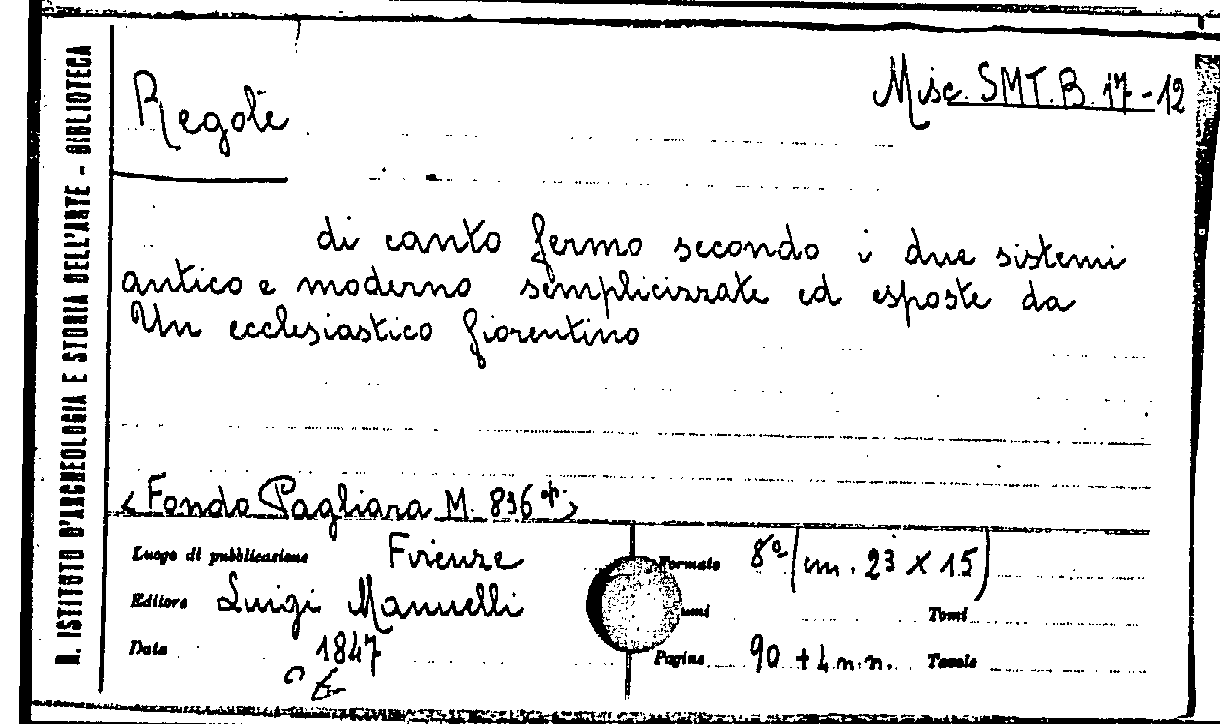 R. ISTITUTO D'ARCHEOLOGIA E STORIA DELL'ARTE - BIBLIOTECA
Misc. SMT. B. 17-12
Regole
di canto fermo secondo i due sistemi
antico e moderno semplicizzate ed esposte da
Un ecclesiastico fiorentino
<Fondo Pagliara M. 896
Luogo di pubblicazione Firenze
Formato 8º (cm. 23 X 15)
Editore Luigi Manuelli
umi Tomi
Data 1847
Pagine 90 + 4 n.n. Tavole